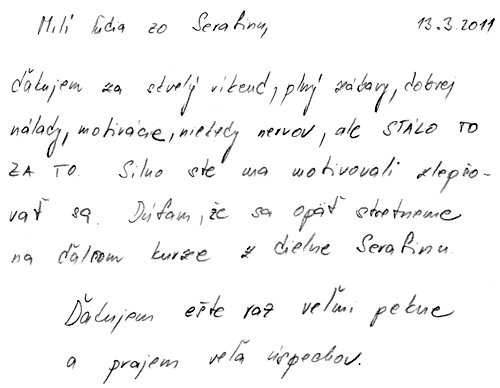 Milí ľudia zo Serafinu, 13.3.2011
ďakujem za skvelý víkend, plný zábavy, dobrej
nálady, motivácie, niekedy nervov, ale STÁLO TO
ZA TO. Silno ste ma motivovali zlepšo-
vať sa. Dúfam, že sa opäť stretneme
na ďalšom kurze z dielne Serafinu.
Ďakujem ešte raz veľmi pekne
a prajem veľa úspechov.